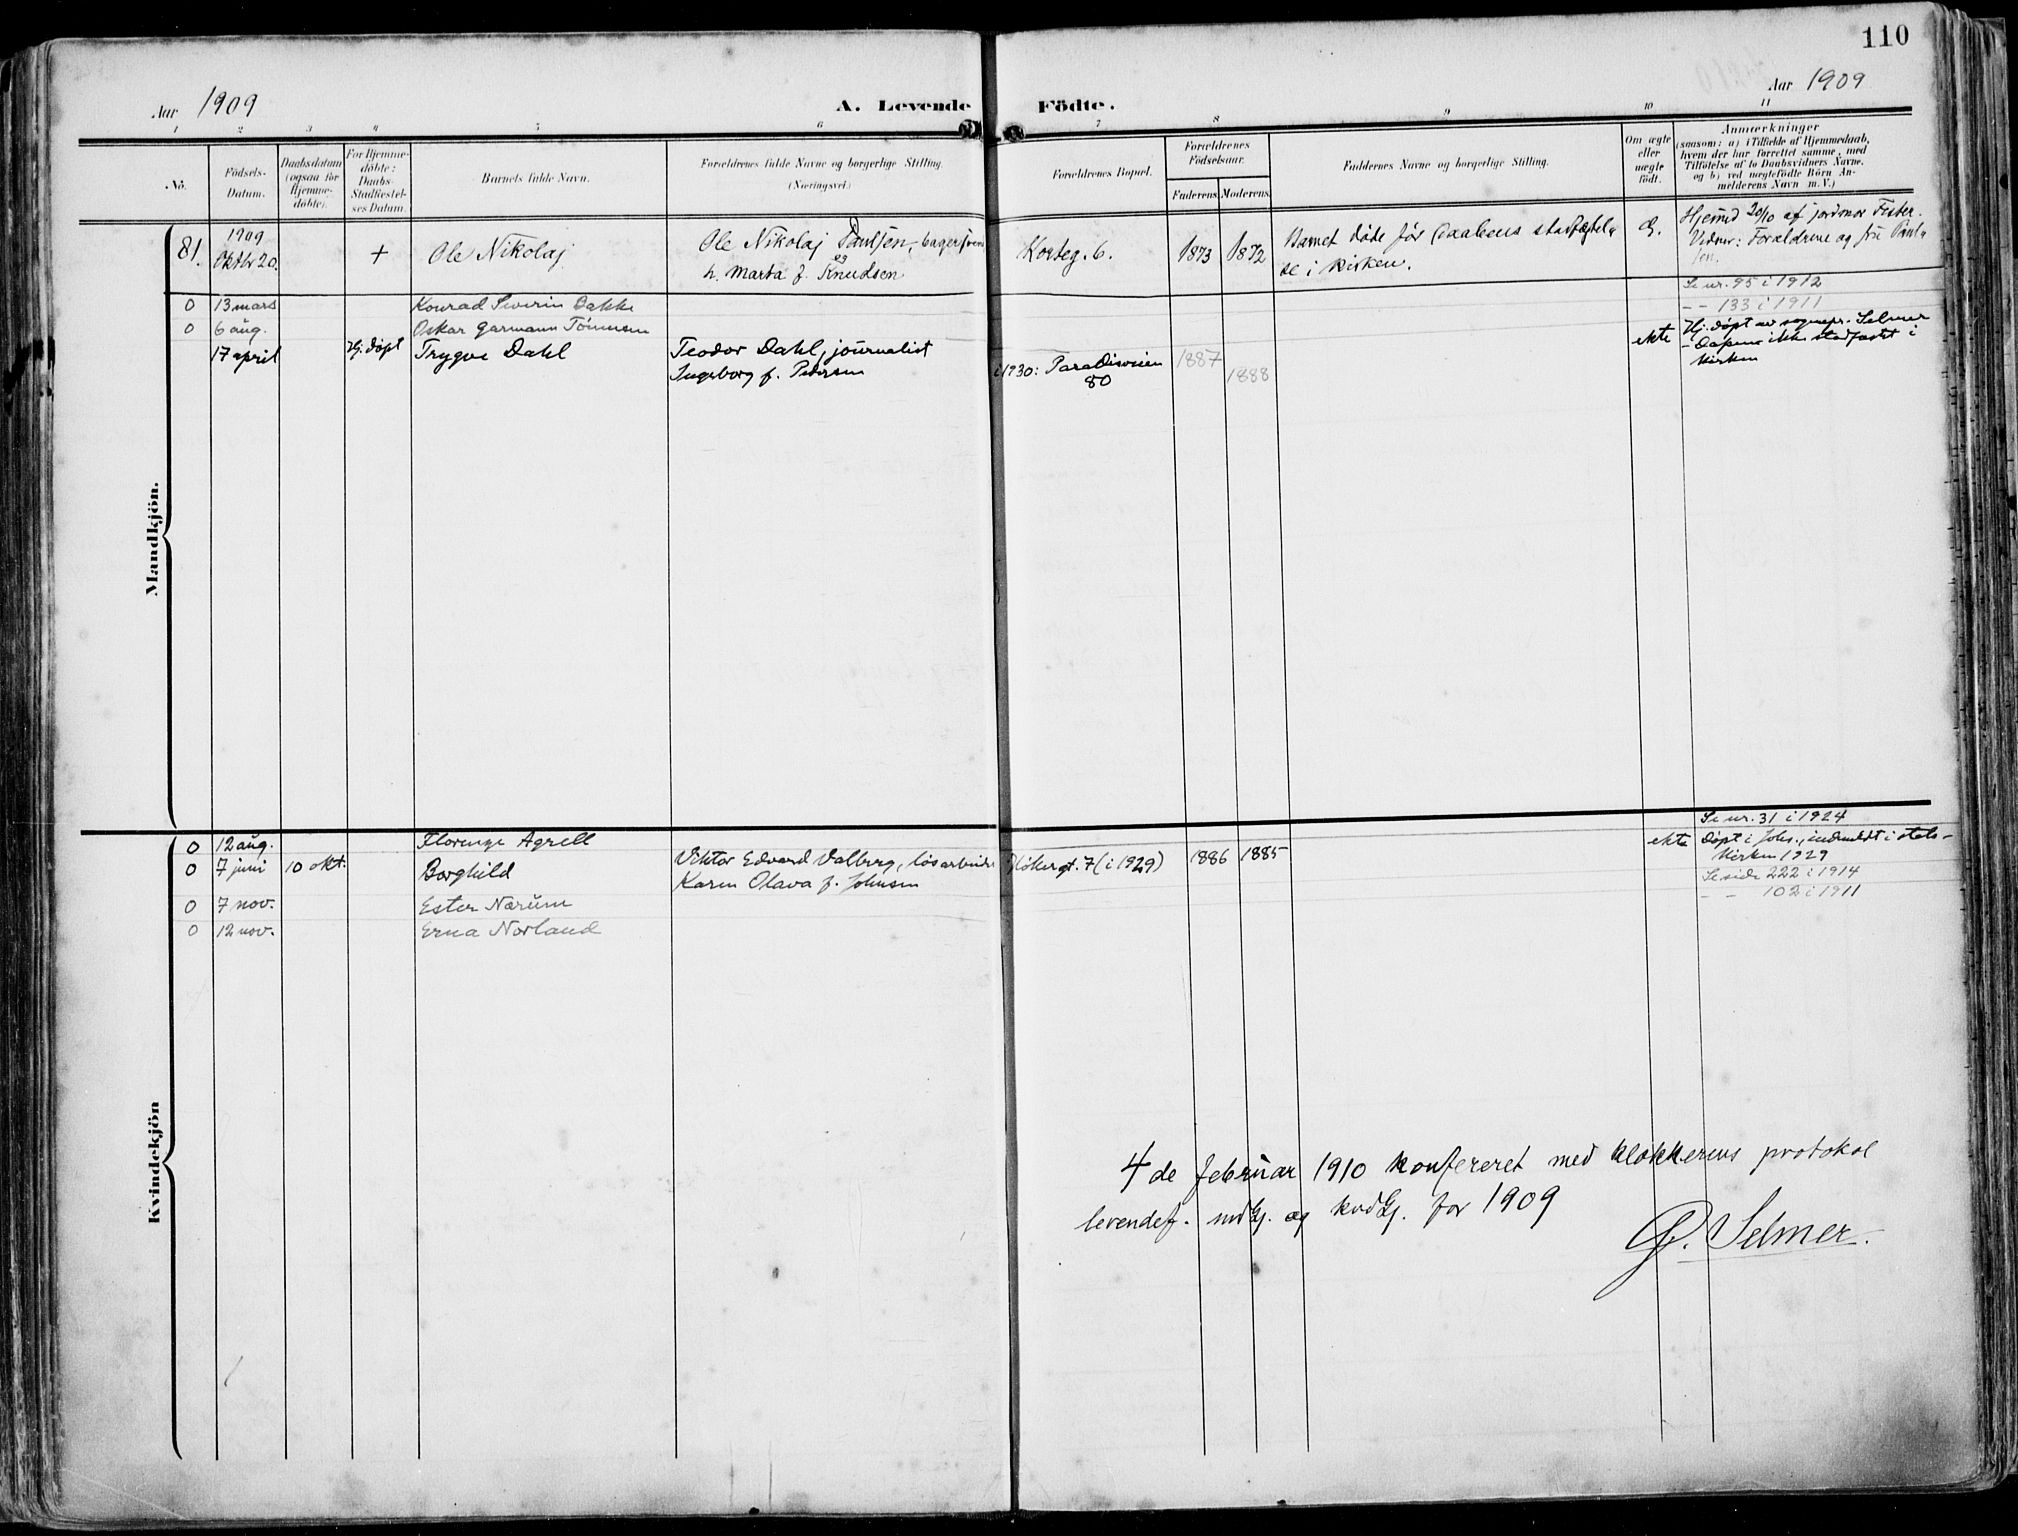 110
Aar 1909
A. Levende Födte.
Aar 1909
1 2 3 4 5 6 7 8 9 10 11
No.
Födsels-Datum.
Daabsdatum (ogsaa for Hjemme-döbte).
For Hjemme-döbte: Daabs-Stadfæstel-ses Datum
Barnets fulde Navn.
Forældrenes fulde Navne og borgerlige Stilling.
(Næringsvei.)
Forældrenes Bopæl.
Forældrenes Födselsaar.
Faderens Moderens
Faddernes Navne og borgerlige Stilling.
Om ægte eller uægte födt.
Anmærkninger
(saasom: a) i Tilfælde af Hjemmedaab,
hvem der har forrettet samme, med
Tilföielse af to Daabsvidners Navne.
og b) ved uægtefödte Börn An-
melderens Navn m. V.)
Mandkjön.
81. 1909 Oktbr 20. + Ole Nikolaj Ole Nikolaj Paulsen, bagersvend
h. Marta f. Knudsen
Korteg. 6. 1873 1872 Barnet døde før Daabens stadfæstel-
se i kirken.
Æ. Hjemd 20/10 af jordmor Fister.
Vidner: Forældrene og fru Paul-
sen.
0 13 mars Konrad Severin Dakke Se nr. 95 i 1912
0 6 aug. Oskar Garmann Tönnesen - - 133 i 1911
17 april Hj. døpt Trygve Dahl Teodor Dahl, journalist
Ingeborg f. Pedersen
i 1930: Paradisveien
80
1887 1888 ekte Hj. døpt av sognepr. Selmer
- Dåpen ikke stadfæstet i
kirken
Kvindekjön
0 12 aug. Florenze Agrell Se nr. 31 i 1924
0 7 juni 10 okt. Borghild Viktor Edvard Valberg, løsarbeider
Karen Olava f. Johnsen
Høkergt. 7 (i 1929) 1886 1885 ekte Døpt i Johs., indmeldt i stats-
kirken 1929
0 7 nov. Ester Nærum Se side 222 i 1914
0 12 nov. Erna Norland - - 102 i 1911
4de februar 1910 konfereret med klokkerens protokol
levendef. mdkj. og kvdkj. for 1909
G. Selmer.